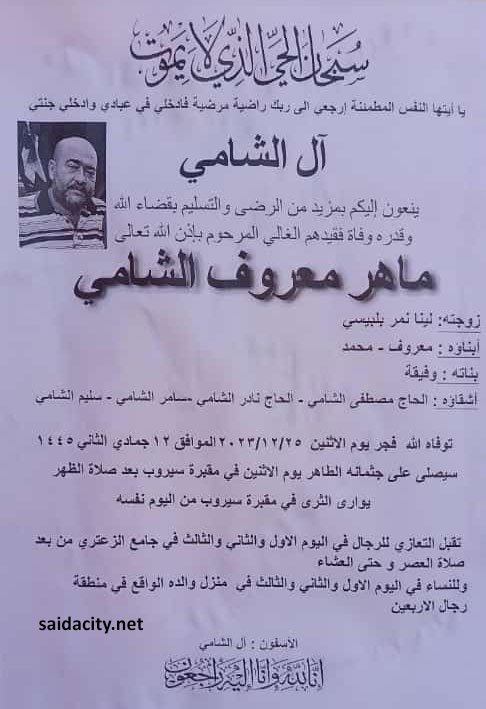 سبحان الحي الذي لا يموت
يا أيتها النفس المطمئنة إرجعي الى ربك راضية مرضية فادخلي في عبادي وادخلي جنتي
آل الشامي
ينعون إليكم بمزيد من الرضى والتسليم بقضاء الله
وقدره وفاة فقيدهم الغالي المرحوم بإذن الله تعالى
ماهر معروف الشامي
زوجته: لينا نمر بلبيسي
أبناؤه : معروف - محمد
بناته : وفيقة
أشقاؤه : الحاج مصطفى الشامي - الحاج نادر الشامي -سامر الشامي - سليم الشامي
توفاه الله فجر يوم الاثنين ٢٠٢٣/١٢/٢٥ الموافق ١٢ جمادي الثاني ١٤٤٥
سيصلى على جثمانه الطاهر يوم الاثنين في مقبرة سيروب بعد صلاة الظهر
يوارى الثرى في مقبرة سيروب من اليوم نفسه
تقبل التعازي للرجال في اليوم الاول والثاني والثالث في جامع الزعتري من بعد
صلاة العصر و حتى العشاء
وللنساء في اليوم الاول والثاني والثالث في منزل والده الواقع في منطقة
رجال الاربعين
saidacity.net
الآسفون : آل الشامي
إنا لله وإنا إليه راجعون